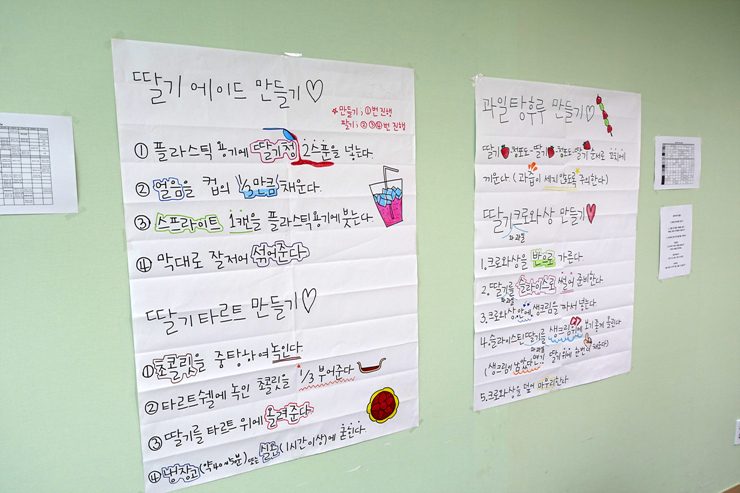 딸기 에이드 만들기♡
*만들기; ①번 진행
팔기; ②③④번 진행
① 플라스틱 용기에 딸기청 2스푼을 넣는다.
② 얼음을 컵의 1/3 만큼 채운다.
③ 스프라이트 1캔을 플라스틱 용기에 붓는다.
④ 막대로 잘 저어 섞어준다
딸기 타르트 만들기♡
① 초콜릿을 중탕하여 녹인다.
② 타르트쉘에 녹인 초콜릿을 1/3 부어준다
③ 딸기를 타르트 위에 올려준다
④ 냉장고(약 40~45분) 또는 실온(1시간 이상)에
과일탕후루 만들기♡
딸기-청포도-딸기-청포도-딸기 순서로 꼬치에
끼운다. (과즙이 세지 않도록 주의한다)
딸기크로와상 만들기♡
1. 크로와상을 반으로 가른다.
2. 딸기를 슬라이스로 썰어 준비한다
3. 크로와상 안에 생크림을 짜서 넣는다
4. 슬라이스 된 딸기를 생크림 위에 보기좋게 올린다
(생크림이 남았다면 딸기 위에 한번 더 짜준다)
5. 크로와상을 덮어 마무리한다